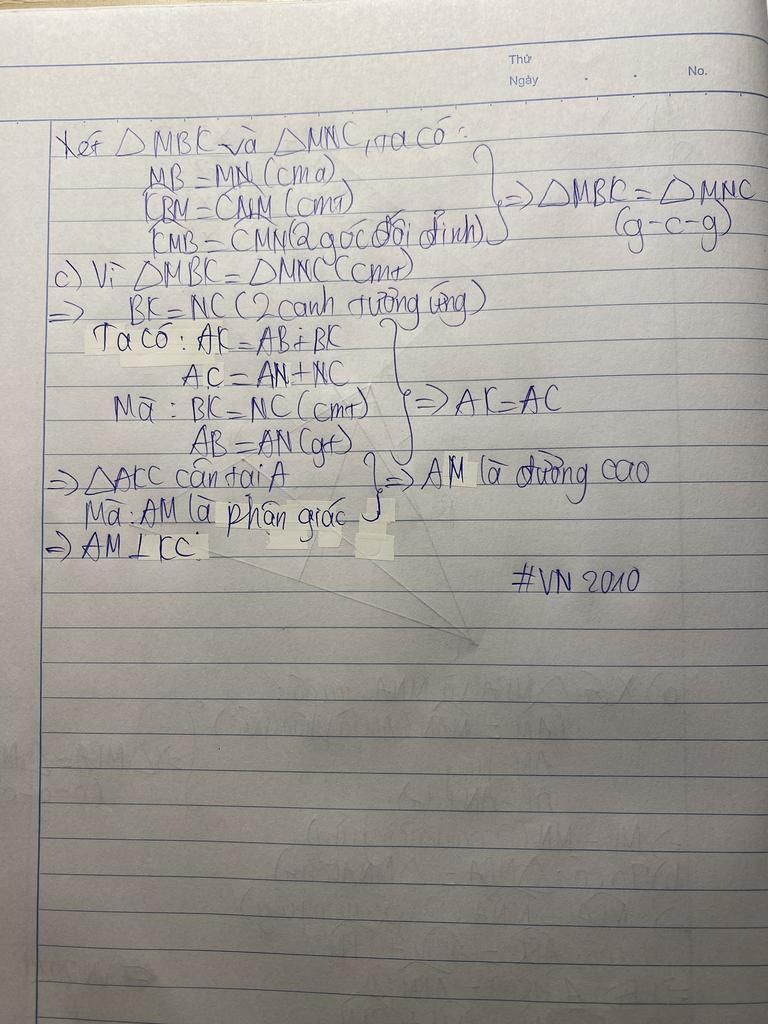 Thứ
Ngày . . No.
Xét △MBK và △MNC, ta có:
MB = MN (cma)
KBM = CNM (cmt)
KMB = CMN (2 góc đối đỉnh)
=> △MBK = △MNC
(g-c-g)
c) Vì △MBK = △MNC (cmt)
=> BK = NC (2 cạnh tương ứng)
Ta có: AK = AB + BK
AC = AN + NC
Mà : BK = NC (cmt)
AB = AN (gt)
=> AK = AC
=> △AKC cân tại A
Mà : AM là phân giác
=> AM là đường cao
=> AM ⊥ KC.
#VN 2010